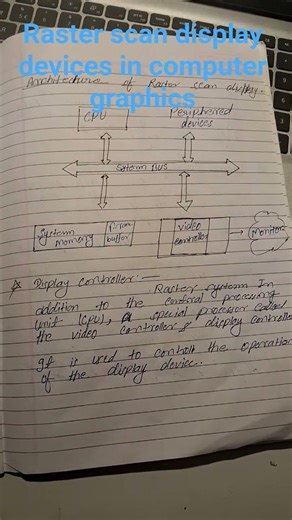 Raster scan display
devices in computer
graphics
Architecture of Raster scan display-
CPU
Peripheral
devices
System BUS
System
memory
Frame
buffer
video
controller
Monitor
Display controller:-
Raster system In
addition to the central processing
unit (CPU), a special processor called
the video controller, display controller
It is used to controll the operation
of the display device.